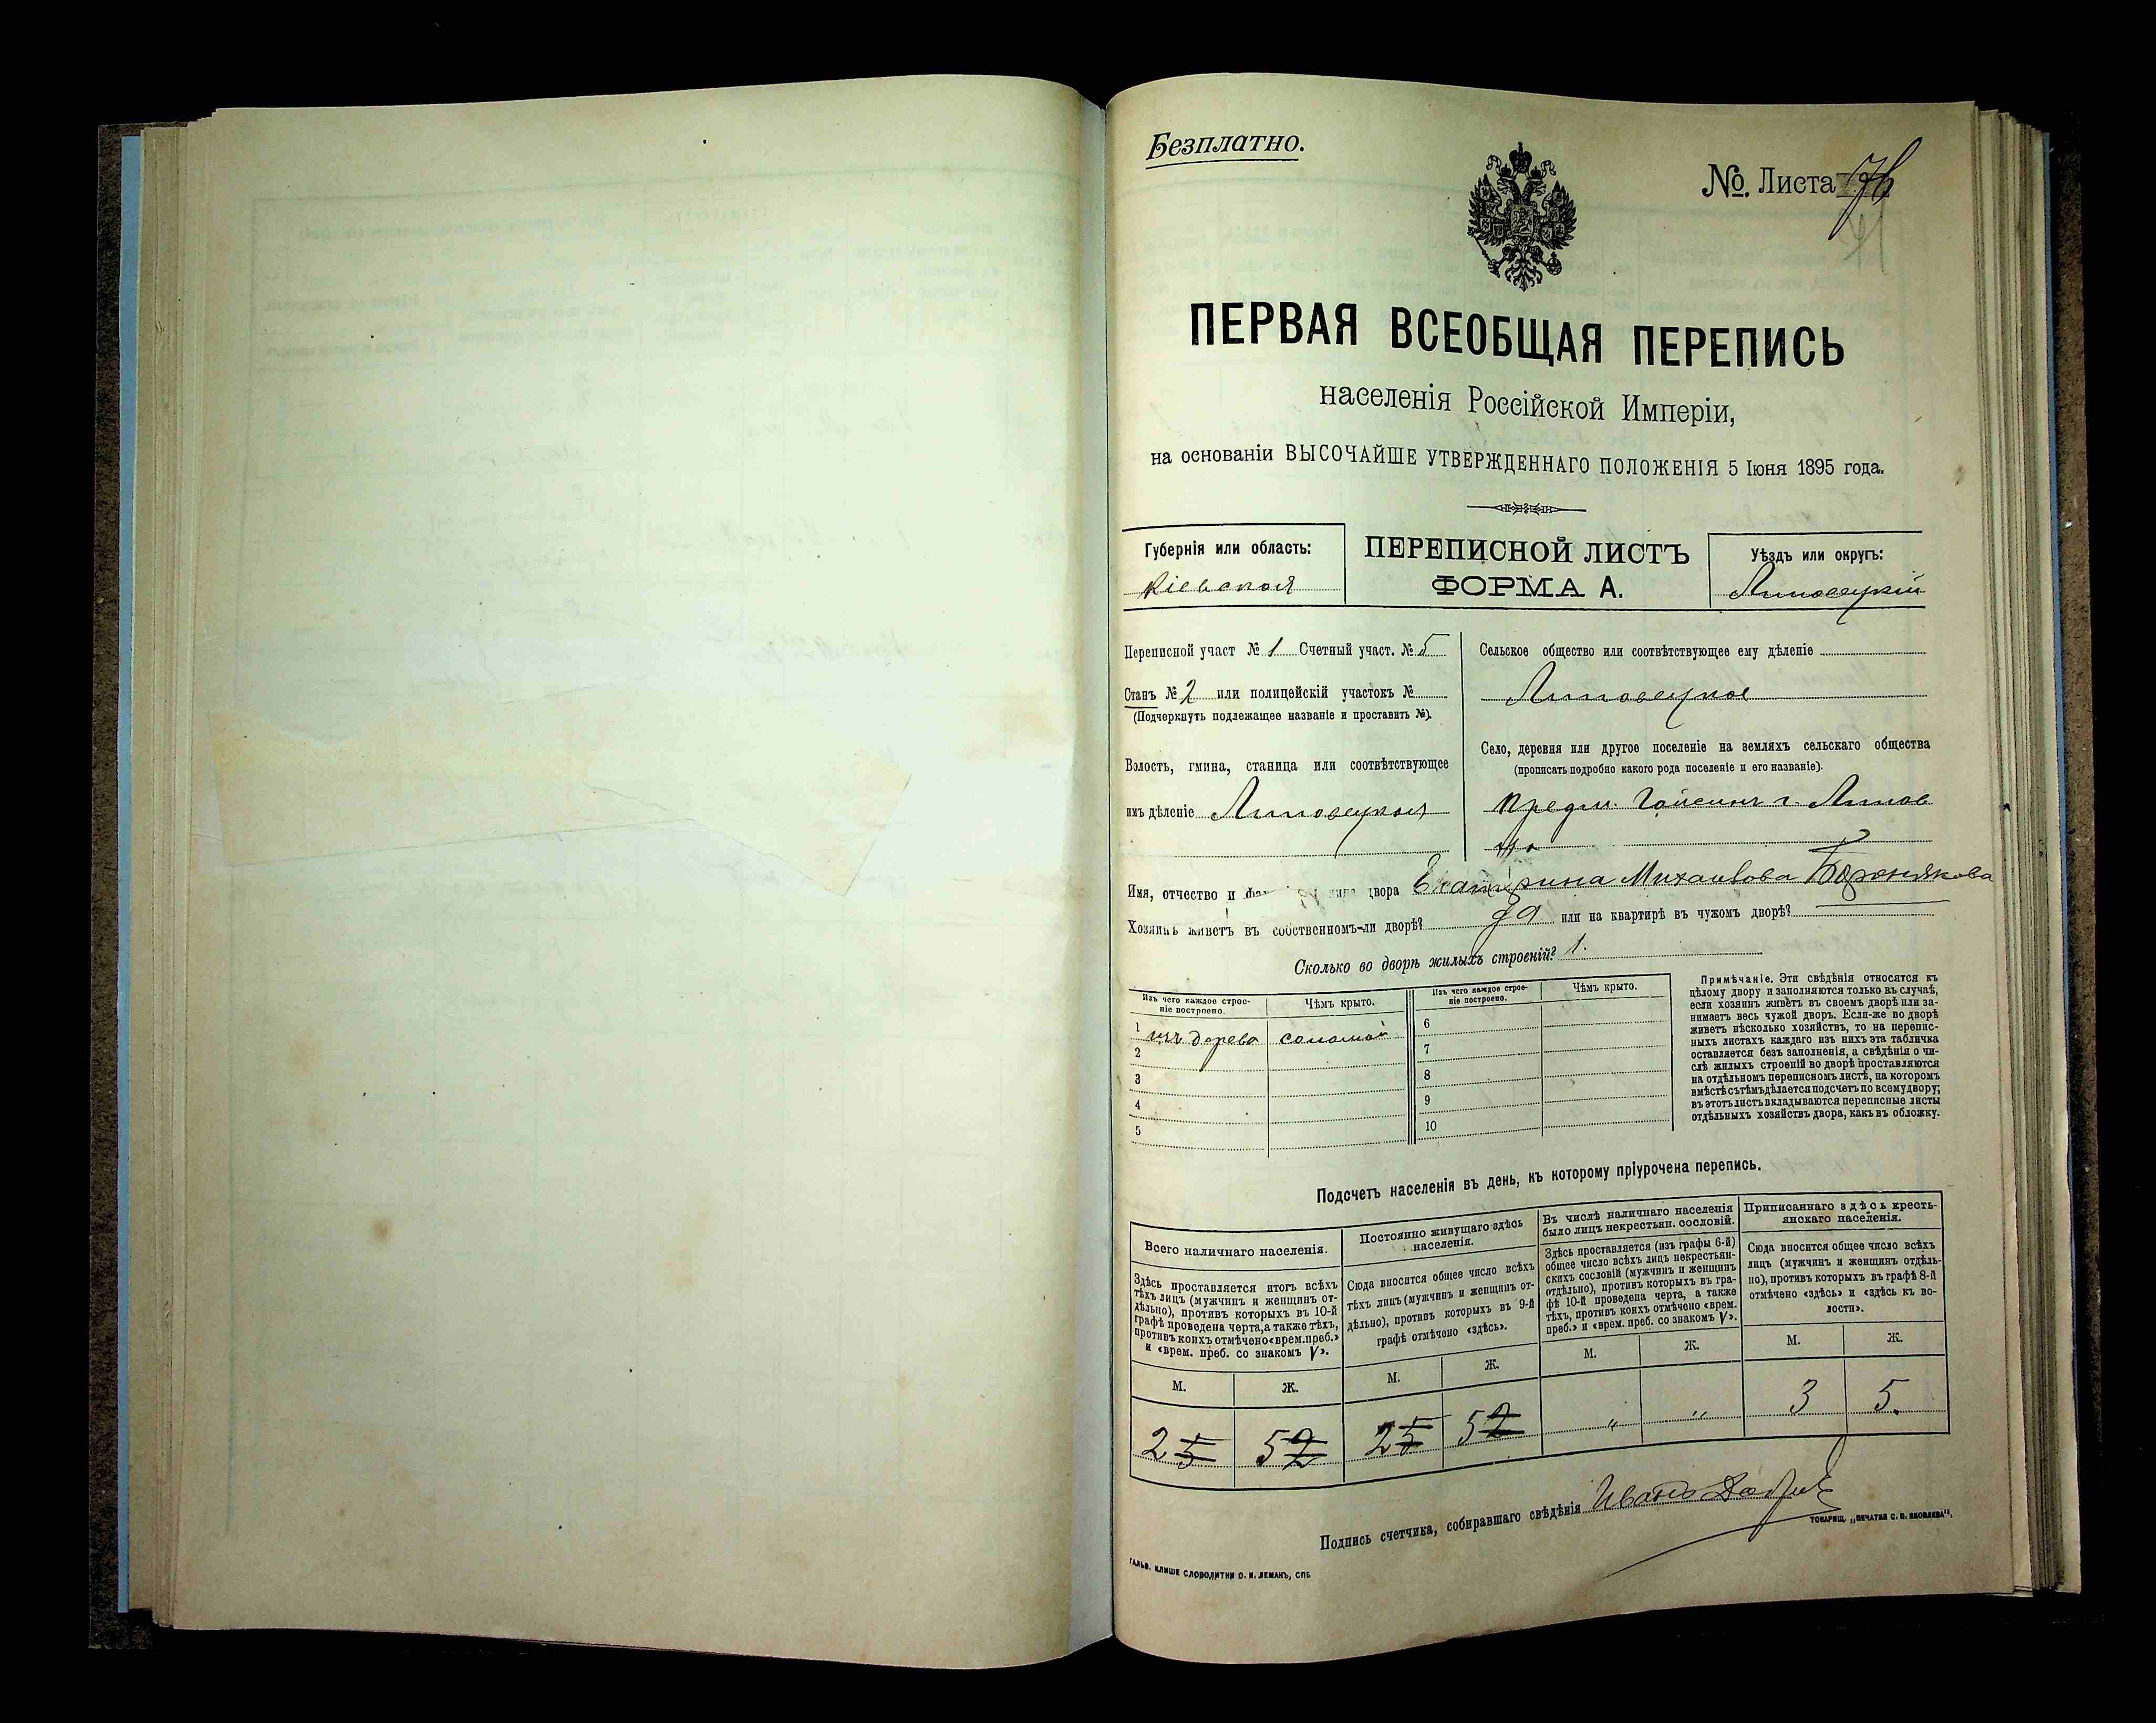 Безплатно.
№. Листа 76
ПЕРВАЯ ВСЕОБЩАЯ ПЕРЕПИСЬ
населенія Россійской Имперіи,
на основаніи ВЫСОЧАЙШЕ УТВЕРЖДЕННАГО ПОЛОЖЕНІЯ 5 Іюня 1895 года.
Губернія или область:
Кіевская
ПЕРЕПИСНОЙ ЛИСТЪ
ФОРМА А.
Уѣздъ или округъ:
Липовецкій
Переписной участ № 1 Счетный участ. № 5
Станъ № 2 или полицейскій участокъ №
(Подчеркнуть подлежащее названіе и проставить №).
Волость, гмина, станица или соотвѣтствующее
имъ дѣленіе Липовецкая
Сельское общество или соотвѣтствующее ему дѣленіе
Липовецкое
Село, деревня или другое поселеніе на земляхъ сельскаго общества
(прописать подробно какого рода поселеніе и его названіе).
Предм. Гайсинъ г. Липов
ца
Имя, отчество и двора Екатерина Михаилова
Хозяинъ живетъ въ собственномъ-ли дворѣ? Да или на квартирѣ въ чужомъ дворѣ?
Сколько во дворѣ жилыхъ строеній? 1.
Изъ чего каждое строе-
ніе построено.
Чѣмъ крыто.
Изъ чего каждое строе-
ніе построено.
Чѣмъ крыто.
1 изъ дерева соломой
2
3
4
5
6
7
8
9
10
Примѣчаніе. Эти свѣдѣнія относятся къ
цѣлому двору и заполняются только въ случаѣ,
если хозяинъ живетъ въ своемъ дворѣ или за-
нимаетъ весь чужой дворъ. Если-же во дворѣ
живетъ нѣсколько хозяйствъ, то на перепис-
ныхъ листахъ каждаго изъ нихъ эта табличка
оставляется безъ заполненія, а свѣдѣнія о чи-
слѣ жилыхъ строеній во дворѣ проставляются
на отдѣльномъ переписномъ листѣ, на которомъ
вмѣстѣ съ тѣмъ дѣлается подсчетъ по всему двору;
въ этотъ листъ вкладываются переписные листы
отдѣльныхъ хозяйствъ двора, какъ въ обложку.
Подсчетъ населенія въ день, къ которому пріурочена перепись.
Всего наличнаго населенія.
Здѣсь проставляется итогъ всѣхъ
тѣхъ лицъ (мужчинъ и женщинъ от-
дѣльно), противъ которыхъ въ 10-й
графѣ проведена черта, а также тѣхъ,
противъ коихъ отмѣчено «врем. преб.»
и «врем. преб. со знакомъ V».
М. Ж.
2 5 5 2
Постоянно живущаго здѣсь
населенія.
Сюда вносится общее число всѣхъ
тѣхъ лицъ (мужчинъ и женщинъ от-
дѣльно), противъ которыхъ въ 9-й
графѣ отмѣчено «здѣсь».
М. Ж.
2 5 5 2
Въ числѣ наличнаго населенія
было лицъ некрестьян. сословій.
Здѣсь проставляется (изъ графы 6-й)
общее число всѣхъ лицъ некрестьян-
скихъ сословій (мужчинъ и женщинъ
отдѣльно), противъ которыхъ въ гра-
фѣ 10-й проведена черта, а также
тѣхъ, противъ коихъ отмѣчено «врем.
преб.» и «врем. преб. со знакомъ V».
М. Ж.
" "
Приписаннаго здѣсь кресть-
янскаго населенія.
Сюда вносится общее число всѣхъ
лицъ (мужчинъ и женщинъ отдѣль-
но), противъ которыхъ въ графѣ 8-й
отмѣчено «здѣсь» и «здѣсь къ во-
лости».
М. Ж.
3 5.
Подпись счетчика, собиравшаго свѣдѣнія
ТОВАРИЩ. „ПЕЧАТНЯ С. П. ЯКОВЛЕВА“.
ГАЛЬВ. КЛИШЕ СЛОВОЛИТНИ О. И. ЛЕМАНЪ, СПБ